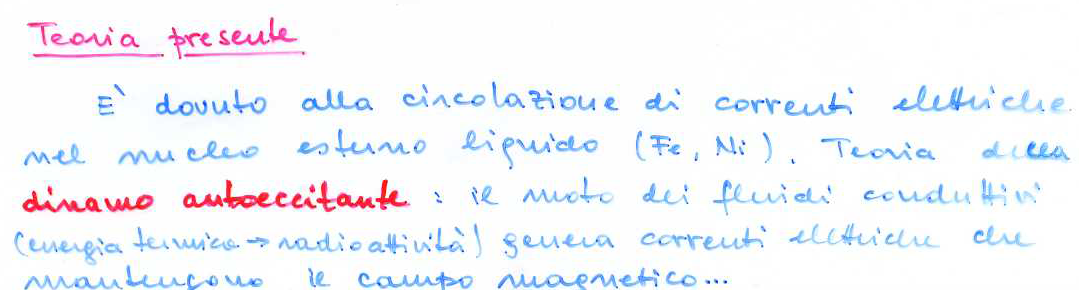 Teoria presente
E` dovuto alla circolazione di correnti elettriche
nel nucleo esterno liquido (Fe, Ni). Teoria della
dinamo autoeccitante : il moto dei fluidi conduttivi
(energia termica → radioattività) genera correnti elettriche che
mantengono il campo magnetico...